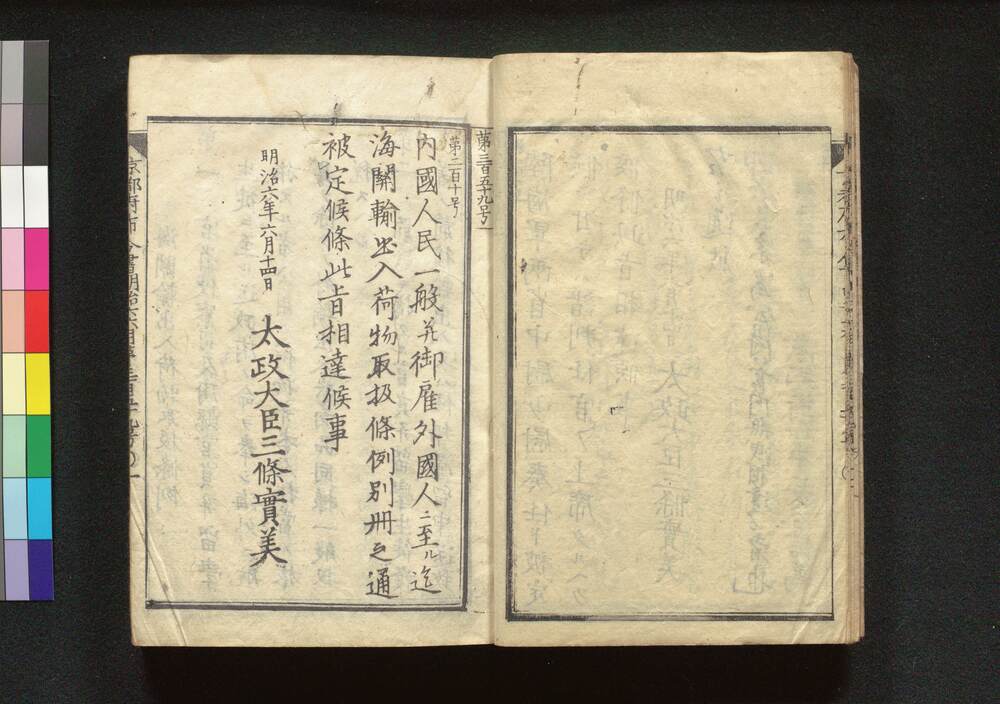 第三百五十九号
第二百十号
内國人民一般并御雇外國人ニ至ル迄
海關輸出入荷物取扱條例別冊之通
被定候條此旨相達候事
明治六年六月十四日
太政大臣三條實美
京都府布令書明治六年六月